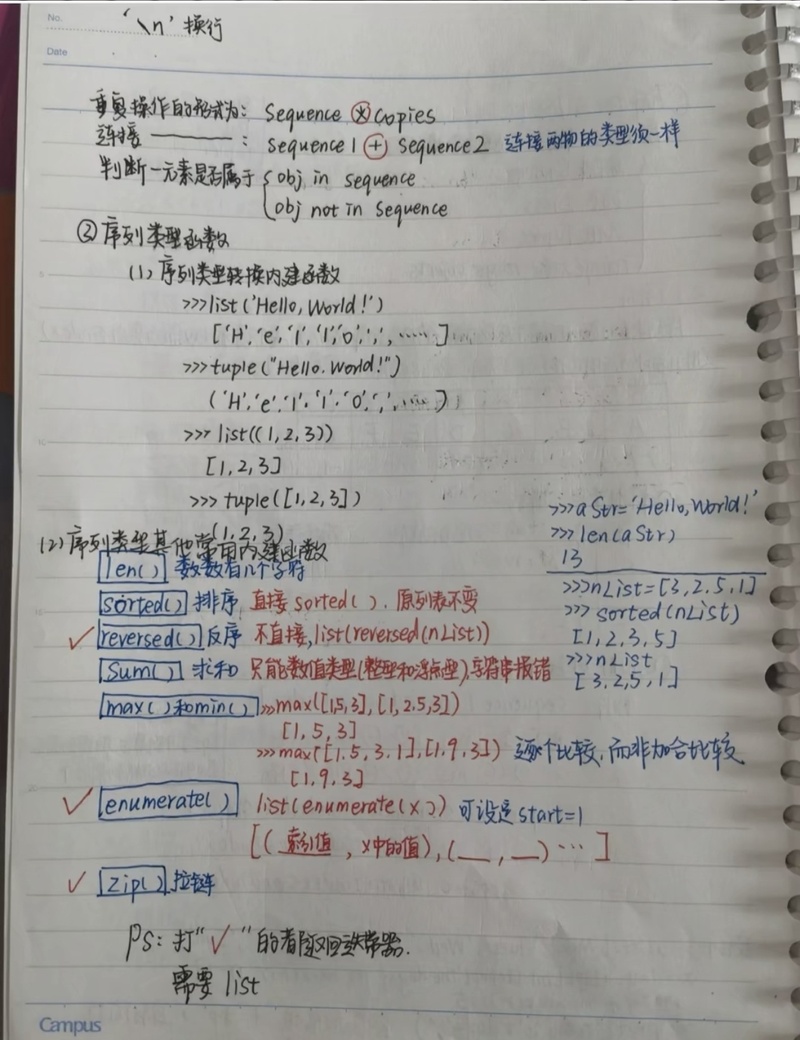 No.
'\n' 换行
Date
重复操作的形式为: Sequence * copies
连接 ——— : sequence1 + sequence2 连接两物的类型须一样
判断一元素是否属于 { obj in sequence
obj not in Sequence
② 序列类型函数
(1) 序列类型转换内建函数
>>>list('Hello, World!')
['H','e','l','l','o',',',……]
>>>tuple("Hello. World!")
('H','e','l','l','o',',',……)
>>> list((1,2,3))
[1,2,3]
>>> tuple([1,2,3])
(1,2,3)
(2) 序列类型其他常用内建函数
len() 数数有几个字符
sorted() 排序 直接sorted(). 原列表不变
✓ reversed() 反序 不直接, list(reversed(nList))
Sum() 求和 只能数值类型(整型和浮点型),字符串报错
max()和min() >>>max([1,5,3],[1,2.5,3])
[1,5,3]
>>>max([1.5,3,1],[1,9,3]) 逐个比较,而非加合比较
[1,9,3]
✓ enumerate() list(enumerate(x)) 可设定start=1
[(索引值, x中的值),(__,__)…]
✓ Zip() 拉链
PS: 打"✓"的都返回迭带器.
需要 list
>>>aStr='Hello, World!'
>>> len(aStr)
13
>>>nList=[3,2,5,1]
>>> sorted(nList)
[1,2,3,5]
>>>nList
[3,2,5,1]
Campus